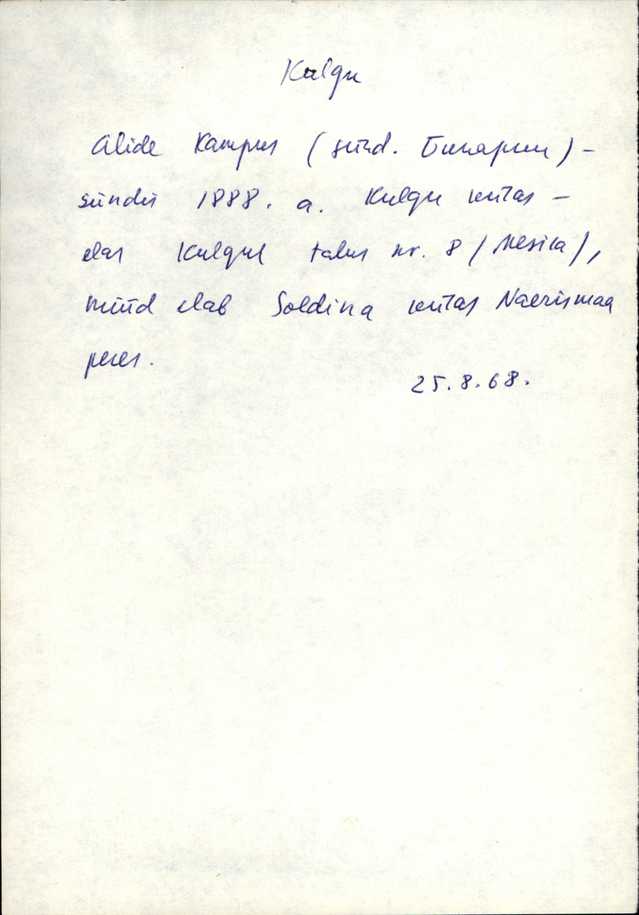 Kulgu
Alide Kampus (sünd.) –
sündis 1888. a. Kulgu külas –
elas Kulgul talus nr. 8 /Mesila/,
nüüd elab Soldina külas Naerismaa
peres.
25.8.68.